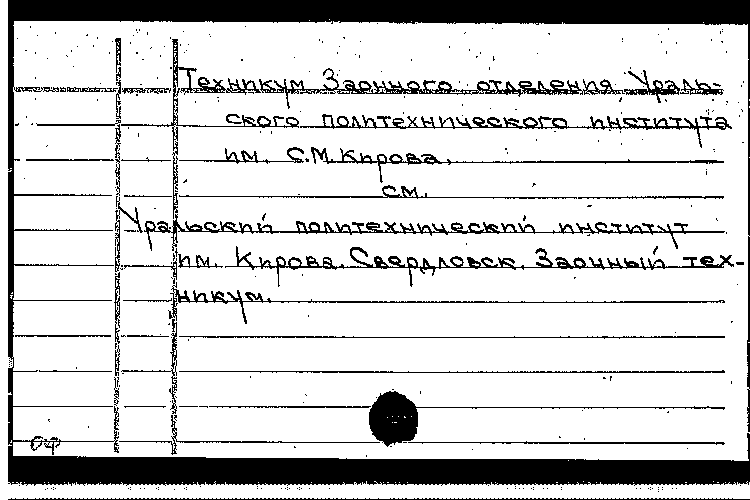 Техникум Заочного отделения Ураль-
ского политехнического института
им. С.М. Кирова.
см.
Уральский политехнический институт
им. Кирова. Свердловск. Заочный тех-
никум.
ОФ